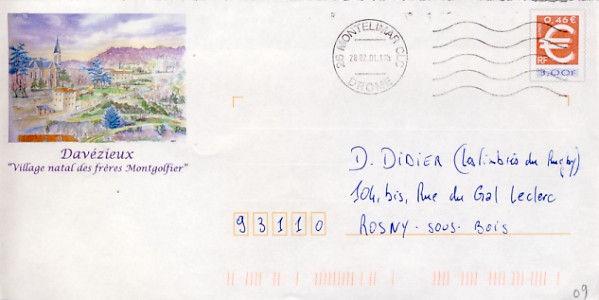 26 MONTELIMAR CDC
DROME
0,46 €
RF
3,00F
Davézieux
"Village natal des frères Montgolfier"
D. DIDIER (Les Timbrés du Rugby)
104, bis, Rue du Gal Leclerc
ROSNY-SOUS-BOIS
93110
09